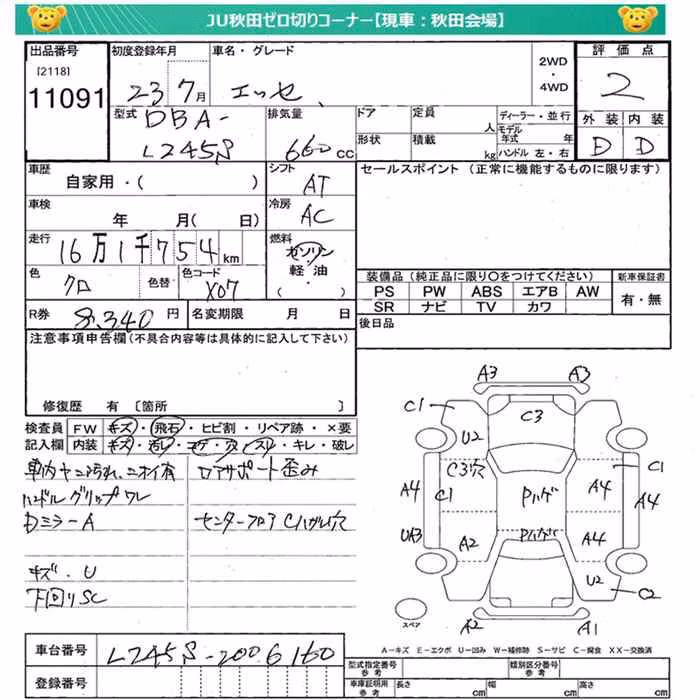 JU秋田ゼロ切りコーナー【現車：秋田会場】
出品番号 初度登録年月 車名・グレード 2WD ・ 4WD 評価点
[2118]
11091 23 7月 エッセ 2
型式 DBA-L245S 排気量 660cc ドア 定員 人 ディーラー・並行 外装 内装
形状 積載 kg モデル年式 年 ハンドル 左・右 D D
車歴 自家用・( ) シフト AT セールスポイント (正常に機能するものに限ります)
車検 年 月(日) 冷房 AC
走行 16万1千754km 燃料 ガソリン 軽油 ・( )
色 クロ 色替 色コード X07
装備品 (純正品に限り〇をつけてください) 新車保証書
PS PW ABS エアB AW 有・無
SR ナビ TV カワ
R券 8,340円 名変期限 月 日 後日品
注意事項申告欄(不具合内容等は具体的に記入して下さい)
修復歴 有 〔箇所 〕
検査員 FW キズ・飛石・ヒビ割・リペア跡・×要
記入欄 内装 キズ・汚レ・コゲ・穴・スレ・キレ・破レ
車内ヤニ汚れ、ニオイ有 ロアサポート歪み
ハンドルグリップワレ
Dミラー A センターフロア Cハガレ穴
キズ・U
下回りSC
A3 A3
C1 C3
U2
C3穴 C1
A4 C1 Pハゲ A4 A4
UA3 A2 Pハゲ A4
U2 C2
スペア A2 A1
A-キズ E-エクボ U-凹み W-補修跡 S-サビ C-腐食 XX-交換済
車台番号 L245S-2006160
登録番号
型式指定番号 参考 類別区分番号 参考
車庫証明用 参考 長さ cm 幅 cm 高さ cm